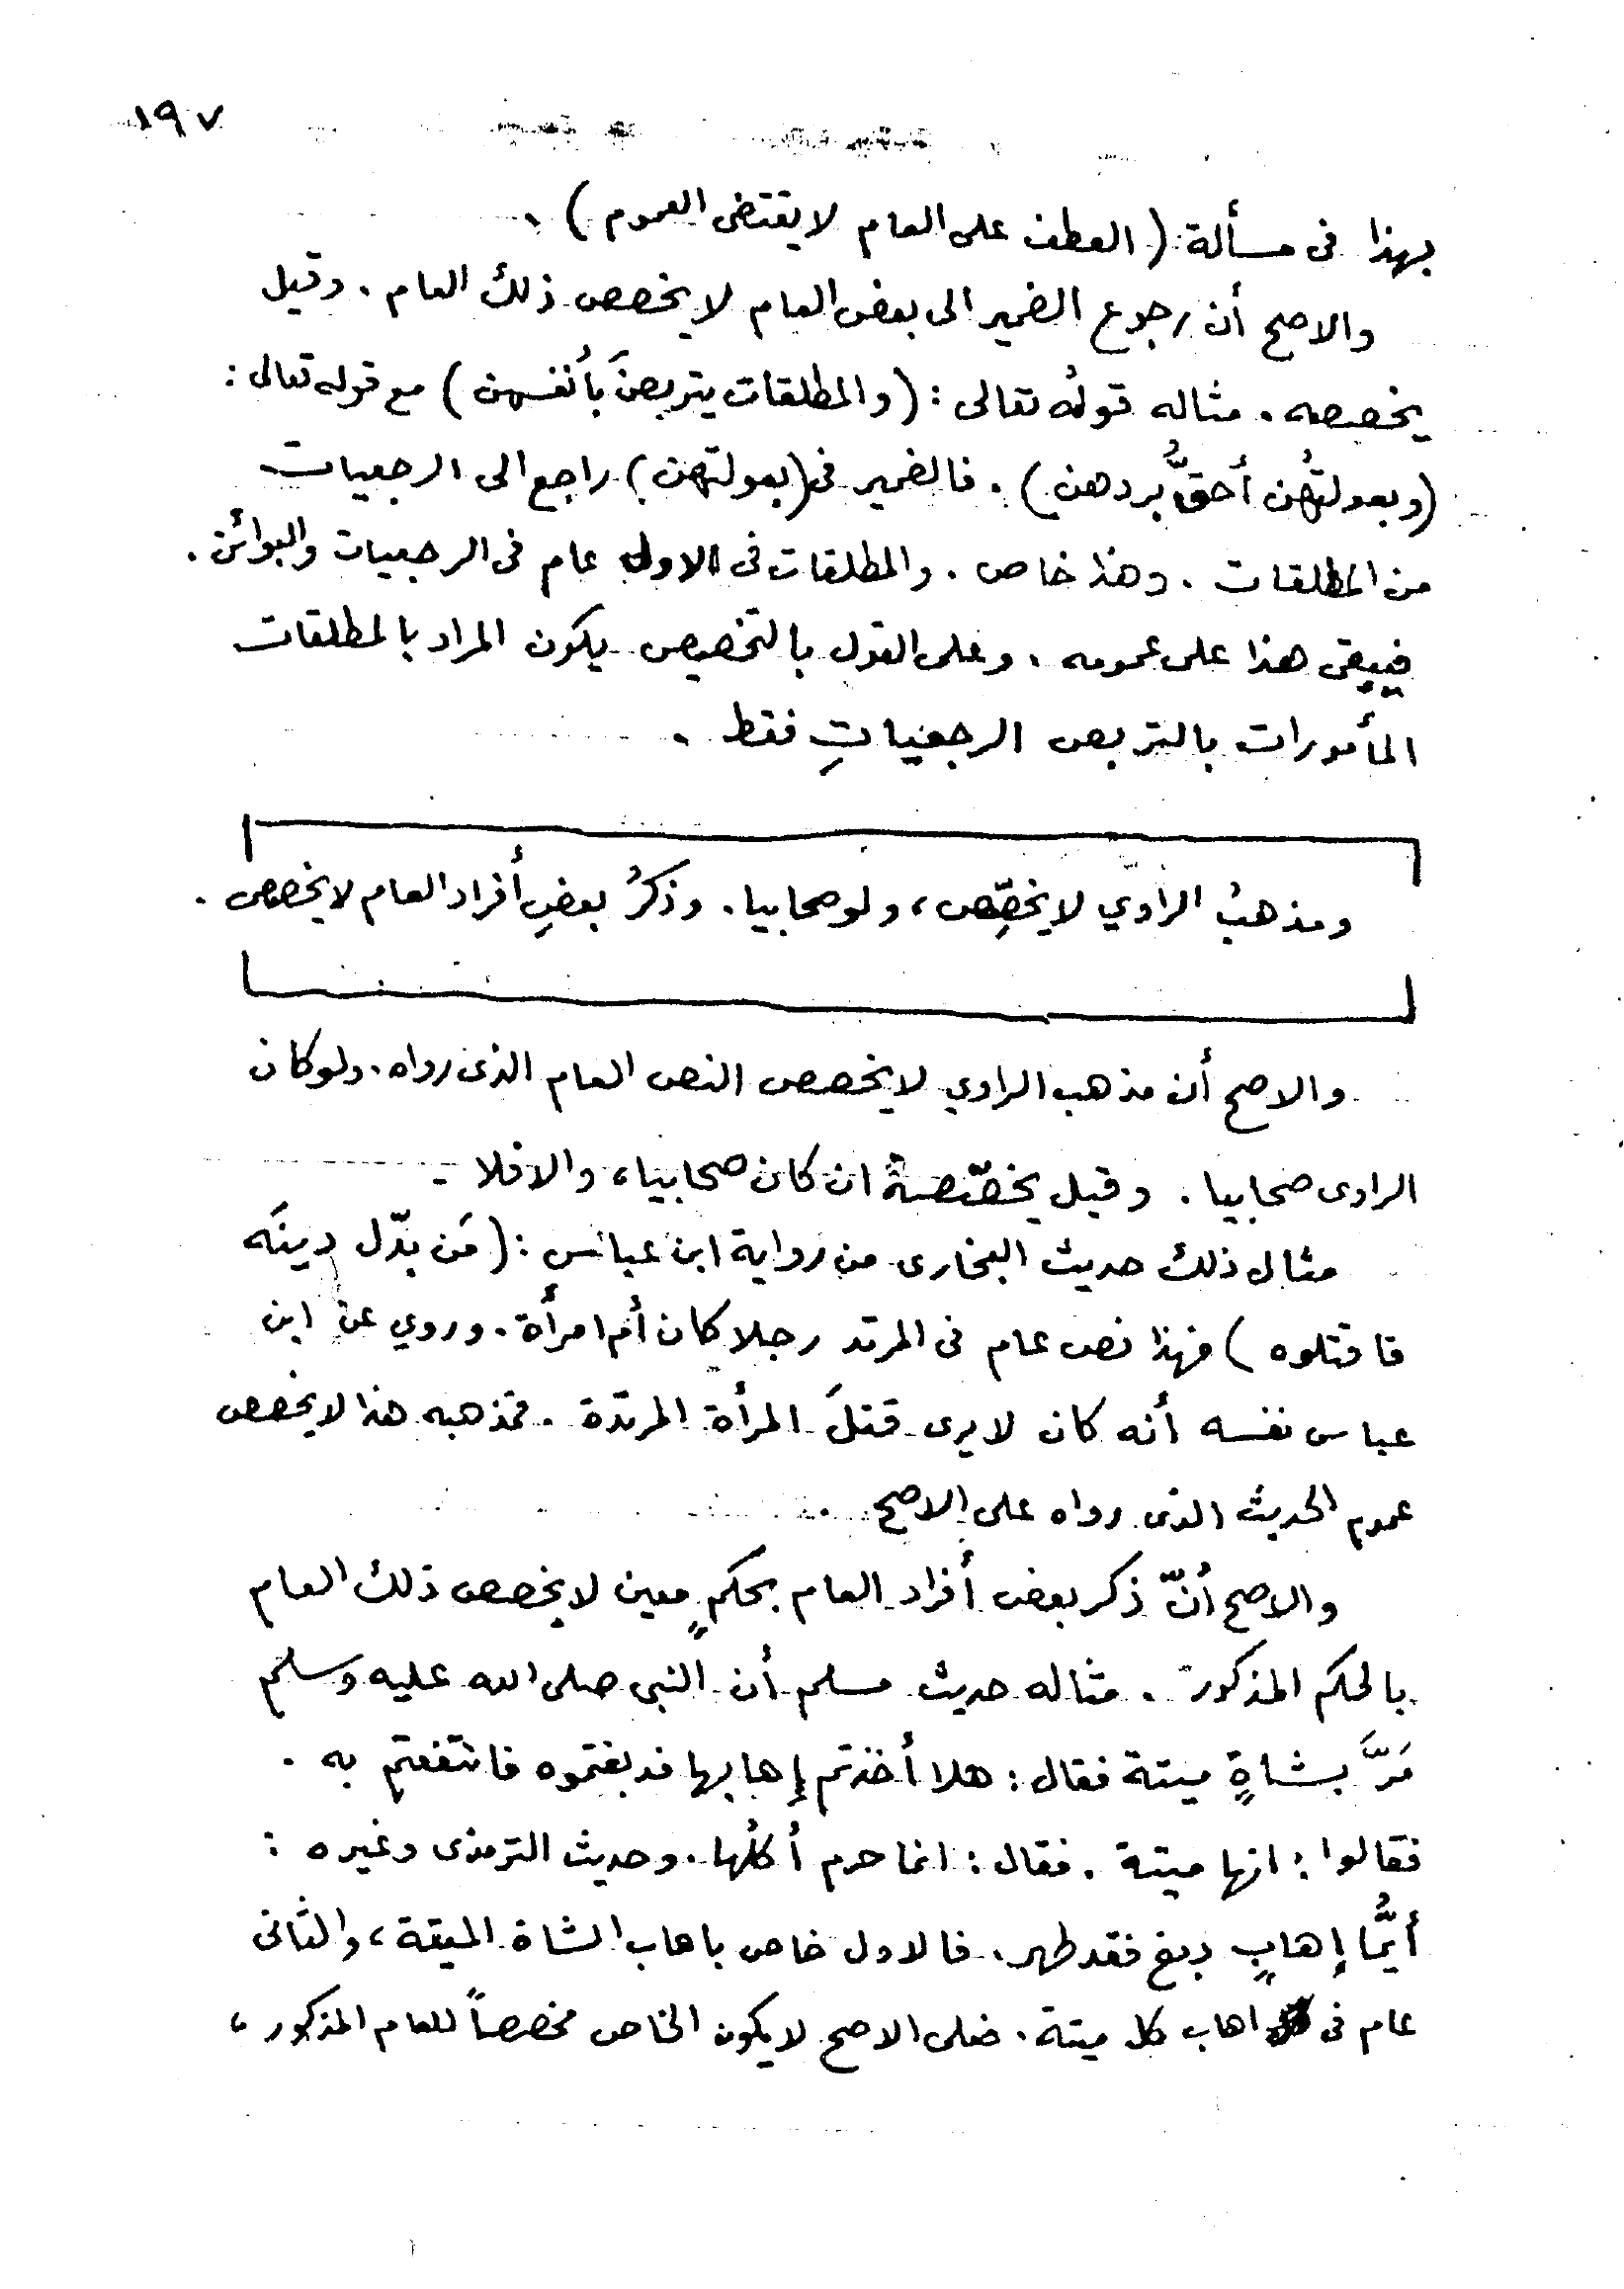 ١٩٧
بهذا فى مسألة (العطف على العام لا يقتضى العموم) .
والاصح أن رجوع الضمير الى بعض العام لا يخصص ذلك العام . وقيل
يخصصه . مثاله قولُه تعالى : (والمطلقات يتربصنَ بأنفسهن) مع قوله تعالى :
(وبعولتُهن أحقُّ بردهن) . فالضمير فى (بعولتهن) راجع الى الرجعيات
من المطلقات . وهذا خاص . والمطلقات فى الاول عام فى الرجعيات والبوائن .
فيبقى هذا على عمومه . وعلى القول بالتخصيص يكون المراد بالمطلقات
المأمورات بالتربص الرجعياتِ فقط .
ومذهبُ الراويّ لا يخصِّص ، ولو صحابيا . وذكرُ بعضِ أفراد العام لا يخصص .
والاصح أن مذهب الراوي لا يخصص النص العام الذى رواه . ولو كان
الراوى صحابيا . وقيل يخصّصه ان كان صحابيا ، والا فلا -
مثال ذلك حديث البخارى من رواية ابن عباس : (مَن بدّل دينَه
فاقتلوه) فهذا نص عام فى المرتد رجلا كان أم امرأة . وروي عن ابن
عباس نفسه أنه كان لا يرى قتلَ المرأة المرتدّة . فمذهبه هذا لا يخصص
عموم الحديث الذى رواه على الاصح .
والاصح أنّ ذكر بعض أفراد العام بحكمٍ معين لا يخصص ذلك العام
بالحكم المذكور . مثاله حديث مسلم أن النبى صلى الله عليه وسلم
مَرَّ بشاةٍ ميتة فقال : هلا أخذتم إهابها فدبغتموه فانتفعتم به .
فقالوا : انها ميتة . فقال : انما حرم أكلُها . وحديث الترمذى وغيره :
أيُّما إهابٍ دبغ فقد طهر . فالاول خاص باهاب الشاة الميتة ، والثانى
عام فى اهاب كل ميتة . فعلى الاصح لا يكون الخاص مخصصاً للعام المذكور ،